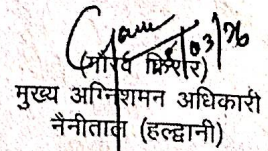 03/26
(गौरव किरार)
मुख्य अग्निशमन अधिकारी
नैनीताल (हल्द्वानी)